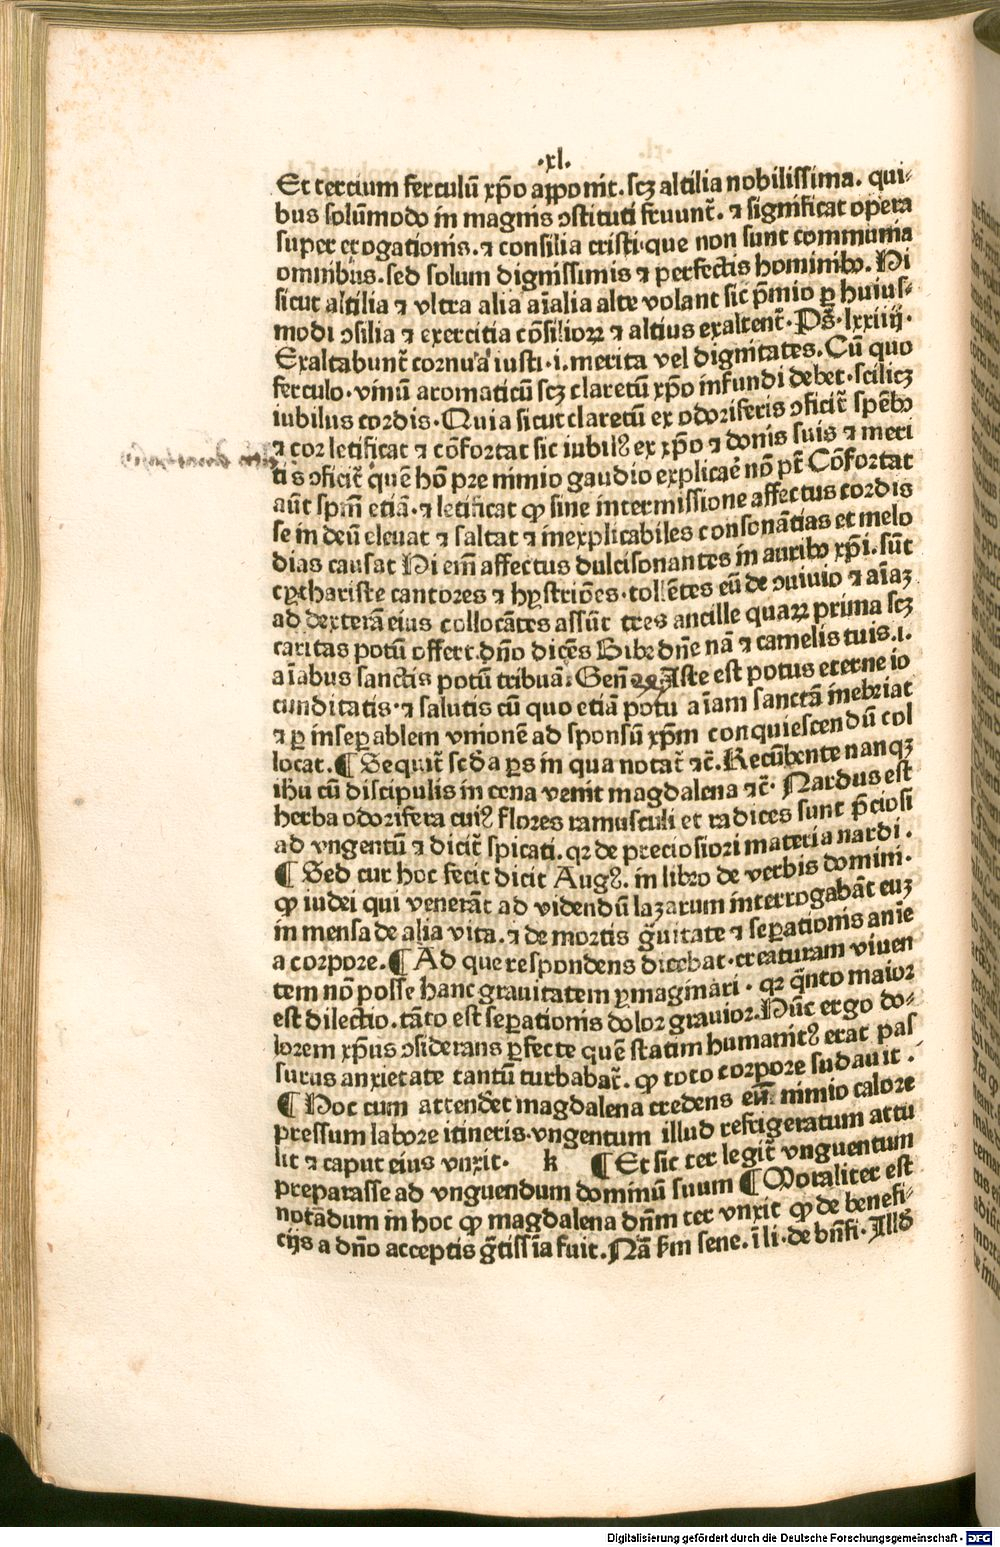 ·xl.
Et tercium ferculū xp̄o apponit. scꝫ altilia nobilissima. qui⸗
bus solūmodo in magnis ↄstituti fruunt̄. ⁊ significat opera
super erogationis. ⁊ consilia cristi·que non sunt communia
omnibus. sed solum dignissimis ⁊ perfectis hominibꝫ. Hi
sicut altilia ⁊ vltra alia aīalia alte volant sic p̄mio ꝑ huius⸗
modi ↄsilia ⁊ exercitia cōsilioꝝ ⁊ altius exaltent̄. Ps̄·lxxiiij·
Exaltabunt̄ cornua iusti·i. merita vel dignitates. Cū quo
ferculo·vinū aromaticū scꝫ claretū xp̄o infundi debet·scilicꝫ
iubilus cordis. Quia sicut claretū ex odoriferis ↄficit̄ spēbꝫ
⁊ cor letificat ⁊ cōfortat sic iubilꝰ ex xp̄o ⁊ donis suis ⁊ meri
tis ↄficit̄ quē hō pre nimio gaudio explicaē nō pt̄ Cōfortat
aūt spm̄ etiā·⁊ letificat ꝙ sine intermissione affectus cordis
se in deū eleuat ⁊ saltat ⁊ inexplicabiles consonātias et melo
dias causat Hi em̄ affectus dulcisonantes in auribꝫ xp̄i. sūt
cythariste cantores ⁊ hystriōes·tollētes eū de ↄuiuio ⁊ aīaꝫ
ad dexterā eius collocātes assūt tres ancille quaꝝ prima scꝫ
caritas potū offert.dn̄o dicēs Bibe dn̄e nā ⁊ camelis tuis.i.
aīabus sanctis potū tribuā: Gen̄ Iste est potus eterne io
cunditatis·⁊ salutis cū quo etiā potu aīam sanctā inebriat
⁊ ꝑ inseꝑablem vnionē ad sponsū xp̄m conquiescendū col
locat. ¶ Sequit̄ sc̄da ꝑs in qua notat̄ ⁊c̄. Recūbente nanqꝫ
ihū cū discipulis in cena venit magdalena ⁊c̄· Nardus est
herba odorifera cuiꝰ flores ramusculi et radices sunt p̄ciosi
ad vngentū ⁊ dicit̄ spicati. qꝛ de preciosiori materia nardi.
¶ Sed cur hoc fecit dicit Augꝰ. in libro de verbis domini.
ꝙ iudei qui venerāt ad videndū lazarum interrogabāt euꝫ
in mensa de alia vita. ⁊ de mortis ḡuitate ⁊ seꝑationis anīe
a corpore. ¶ Ad que respondens dicebat·creaturam viuen
tem nō posse hanc grauitatem ymaginari· qꝛ q̄nto maior
est dilectio. tāto est seꝑationis dolor gravior. Hūc ergo do⸗
lorem xp̄us ↄsiderans ꝑfecte quē statim humanitꝰ erat pas
surus anxietate tantū turbabat̄. ꝙ toto corpore sudauit.
¶ Hoc cum attendet magdalena credens eū nimio calore
pressum labore itineris·vngentum illud refrigeratum attu
lit ⁊ caput eius vnxit. k ¶ Et sic ter legit̄ vnguentum
preparasse ad vnguendum dominū suum ¶ Moraliter est
notādum in hoc ꝙ magdalena dn̄m ter vnxit ꝙ de benefi⸗
cijs a dn̄o acceptis ḡtissīa fuit. Nā ẜm sene. ī li·de bn̄fi·Illd̄
Digitalisierung gefördert durch die Deutsche Forschungsgemeinschaft - DFG